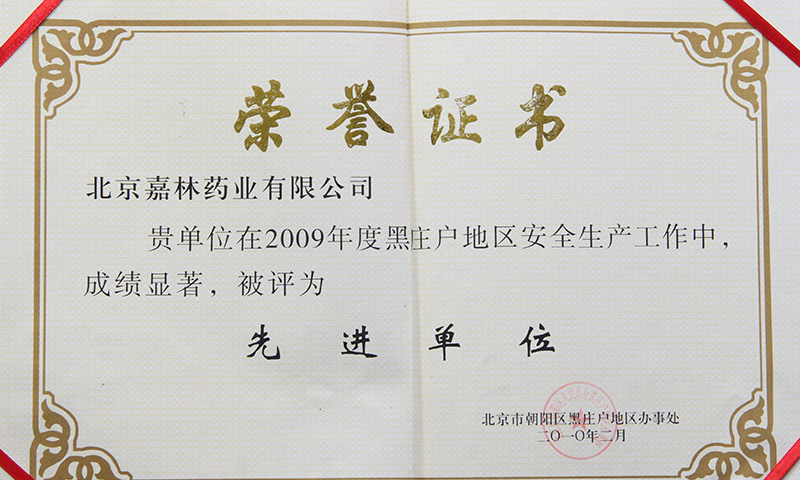 荣誉证书
北京嘉林药业有限公司
贵单位在2009年度黑庄户地区安全生产工作中，
成绩显著，被评为
先进单位
北京市朝阳区黑庄户地区办事处
二〇一〇年二月